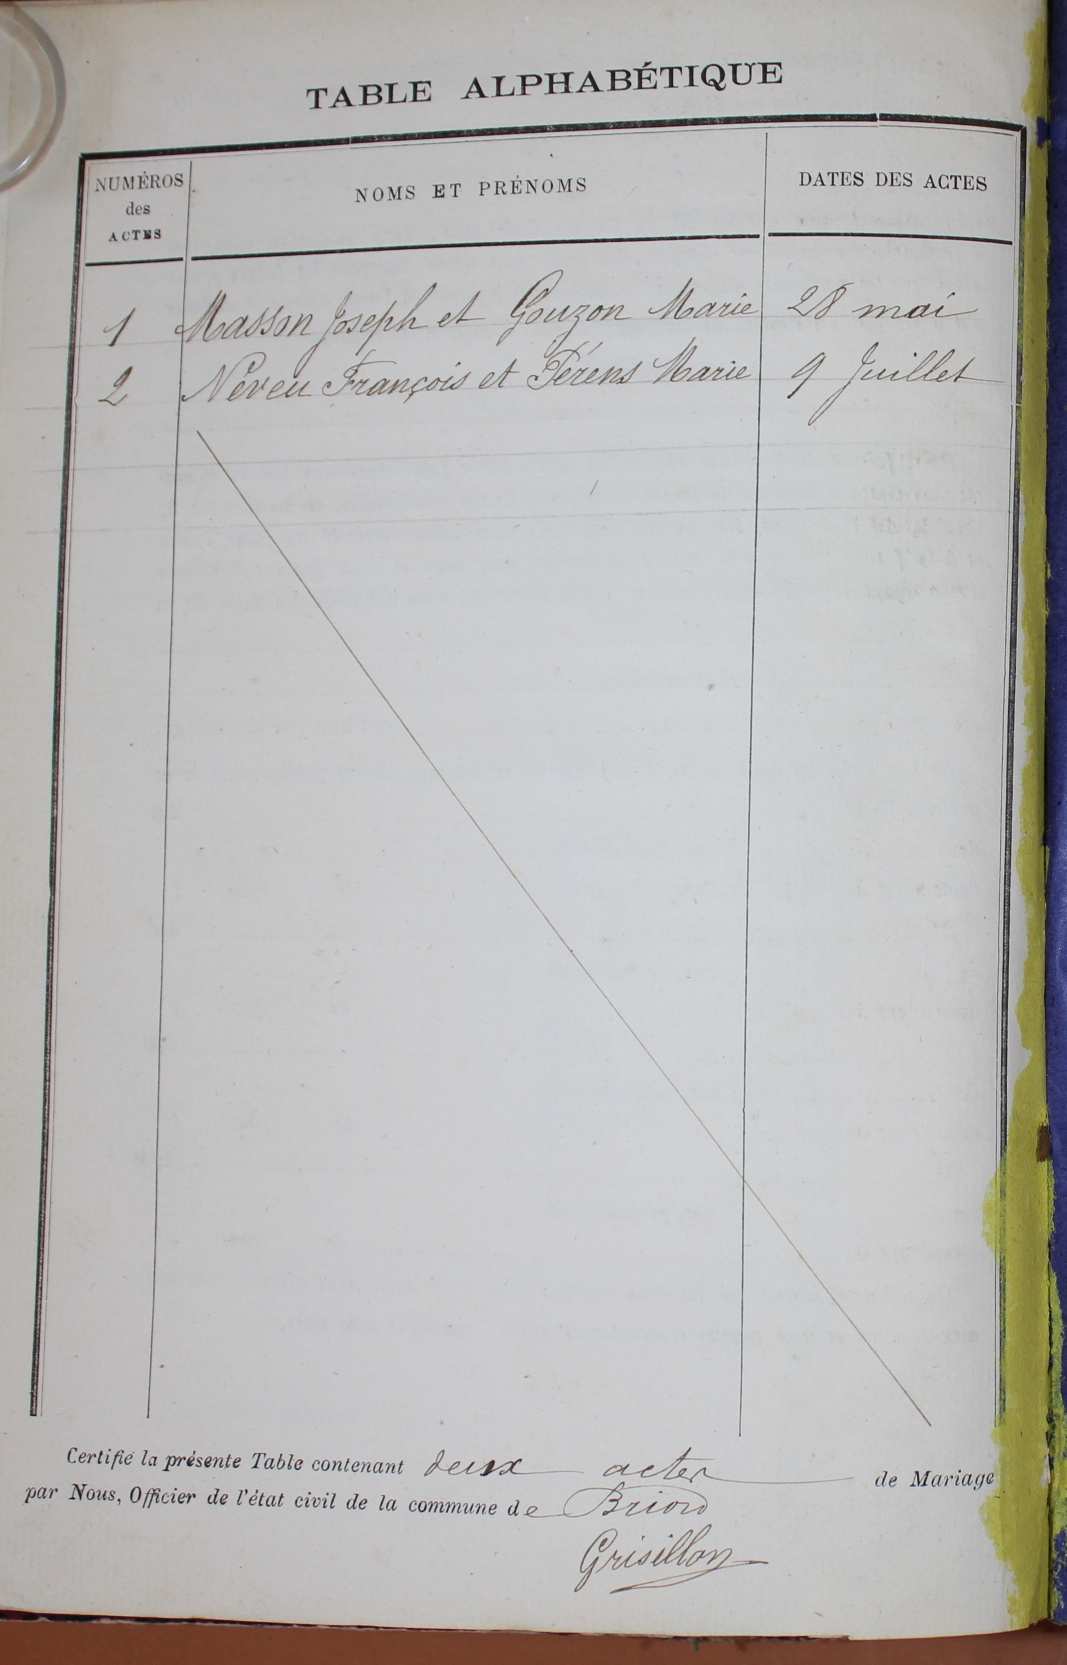 TABLE ALPHABÉTIQUE
NUMÉROS
des
ACTES
NOMS ET PRÉNOMS
DATES DES ACTES
1 Masson Joseph et Gouzon Marie 28 mai
2 Neveu François et Pérens Marie 9 Juillet
Certifié la présente Table contenant deux actes de Mariage
par Nous, Officier de l'état civil de la commune de Briord
Grisillon